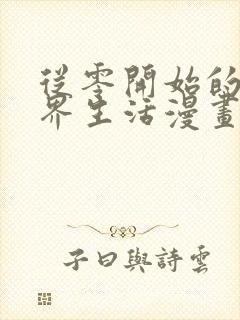 從零開始的
界生活漫畫
子曰與詩雲